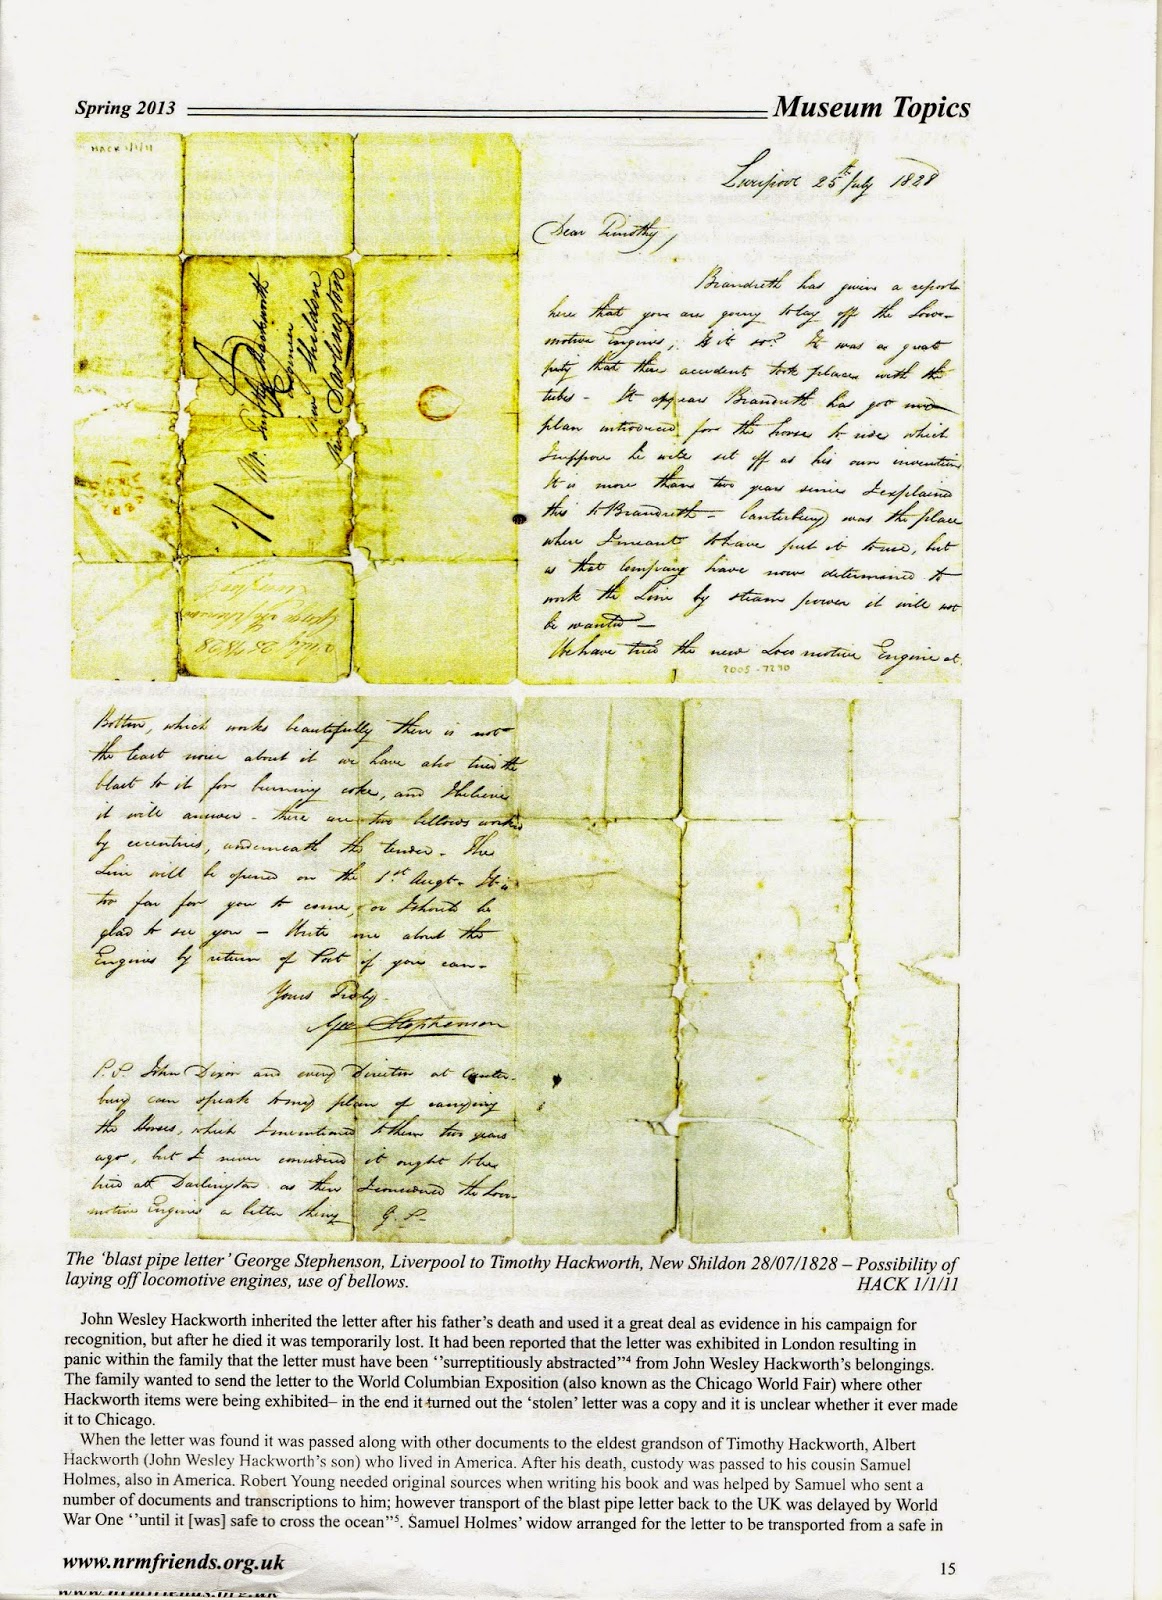 Spring 2013
Museum Topics
HACK 1/1/11
Liverpool 25th July 1828
Dear Timothy,
Brandreth has given a report
here that you are going to lay off the Loco-
motive Engines, Is it so? It was a great
pity that there accident took place with the
tubes - It appears Brandreth has got
plan introduced for the horse to ride which
I suppose he will set off as his own invention
It is more than two years since I explained
this to Brandreth - Canterbury was the place
where I meant to have put it to use, but
as that Company have now determined to
work the Line by steam power it will not
be wanted -
We have tried the new Locomotive Engine at
2005-7270
Mr. Timothy Hackworth
Engineer
New Shildon
near Darlington
July 25 1828
George Stephenson
Liverpool
Bolton, which works beautifully there is not
the least noise about it we have also tried the
blast to it for burning coke, and I believe
it will answer - there are two bellows worked
by eccentrics, underneath the tender. The
Line will be opened on the 1st Augt. It is
too far for you to come, or I should be
glad to see you - Write me about the
Engines by return of Post if you can -
Yours Truly
Geo Stephenson
P.S. John Dixon and every Director at Canter-
bury can speak to my plan of carrying
the Horses, which I mentioned to them two years
ago, but I never considered it ought to be
tried at Darlington as then I considered the Loco-
motive Engines a better thing G. S-
The 'blast pipe letter' George Stephenson, Liverpool to Timothy Hackworth, New Shildon 28/07/1828 – Possibility of
laying off locomotive engines, use of bellows. HACK 1/1/11
John Wesley Hackworth inherited the letter after his father's death and used it a great deal as evidence in his campaign for
recognition, but after he died it was temporarily lost. It had been reported that the letter was exhibited in London resulting in
panic within the family that the letter must have been ''surreptitiously abstracted''⁴ from John Wesley Hackworth's belongings.
The family wanted to send the letter to the World Columbian Exposition (also known as the Chicago World Fair) where other
Hackworth items were being exhibited– in the end it turned out the 'stolen' letter was a copy and it is unclear whether it ever made
it to Chicago.
When the letter was found it was passed along with other documents to the eldest grandson of Timothy Hackworth, Albert
Hackworth (John Wesley Hackworth's son) who lived in America. After his death, custody was passed to his cousin Samuel
Holmes, also in America. Robert Young needed original sources when writing his book and was helped by Samuel who sent a
number of documents and transcriptions to him; however transport of the blast pipe letter back to the UK was delayed by World
War One ''until it [was] safe to cross the ocean''⁵. Samuel Holmes' widow arranged for the letter to be transported from a safe in
www.nrmfriends.org.uk
15